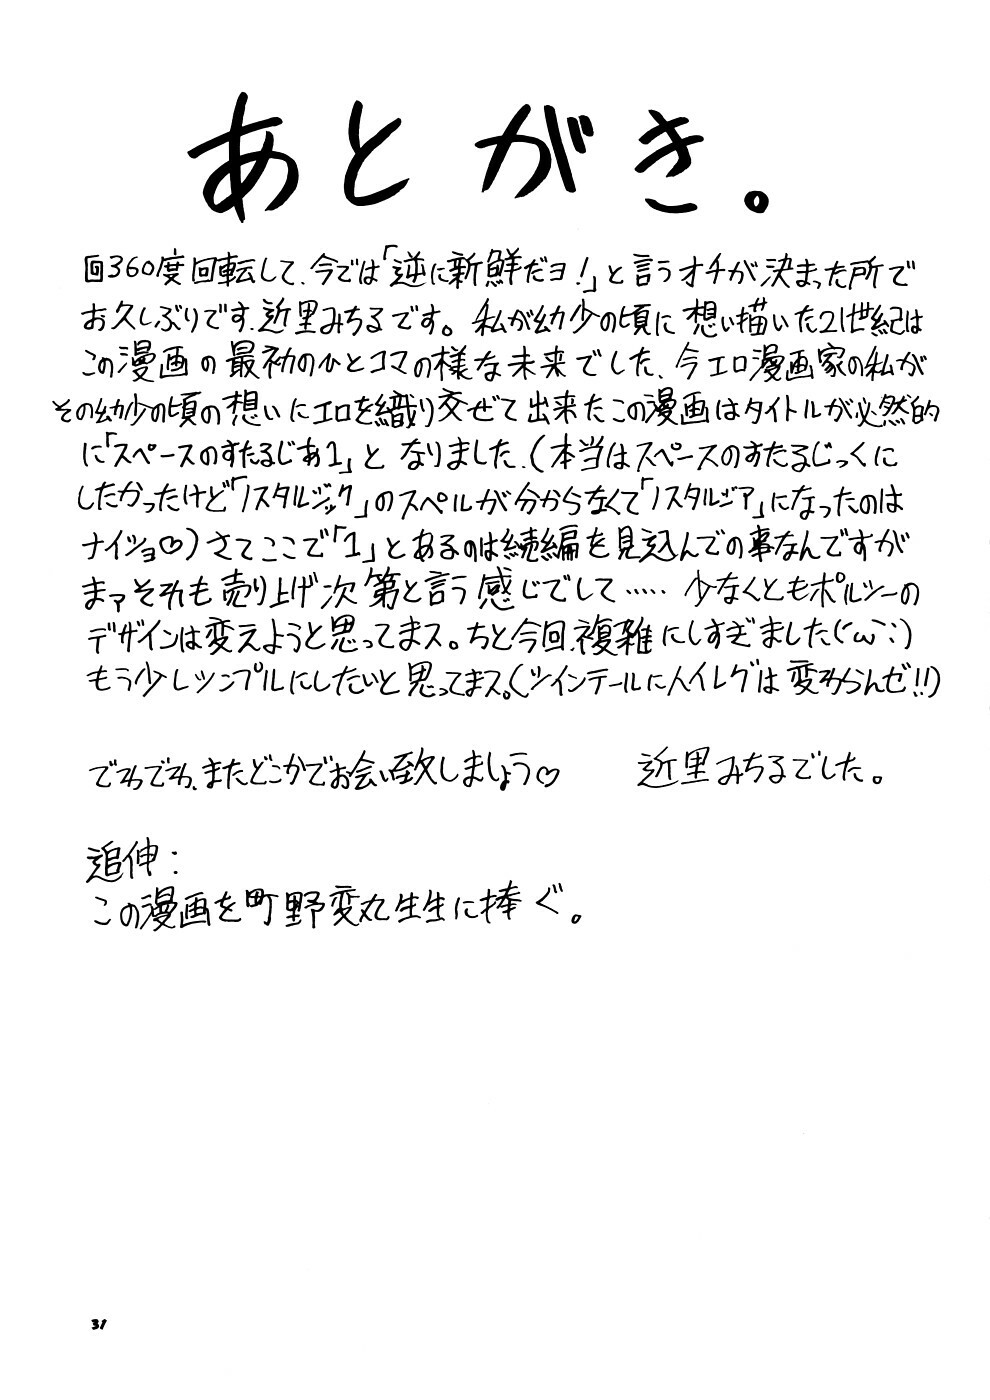 あとがき。
回360度回転して、今では「逆に新鮮だヨ!」と言うオチが決まった所で
お久しぶりです、近里みちるです。私が幼少の頃に想い描いた21世紀は
この漫画の最初のひとコマの様な未来でした、今エロ漫画家の私が
その幼少の頃の想いにエロを織り交ぜて出来たこの漫画はタイトルが必然的
に「スペースのすたるじあ1」となりました、(本当はスペースのすたるじっくに
したかったけど「ノスタルジック」のスペルが分からなくて「ノスタルジア」になったのは
ナイショ♡)さてここで「1」とあるのは続編を見込んでの事なんですが
まァそれも売り上げ次第と言う感じでして……少なくともポルシーの
デザインは変えようと思ってまス。ちと今回、複雑にしすぎました(´ω`;)
もう少しシンプルにしたいと思ってまス。(ツインテールにハイレグは変わらんゼ!!)
でわでわ、またどこかでお会い致しましょう♡ 近里みちるでした。
追伸:
この漫画を町野変丸生生に捧ぐ。
31